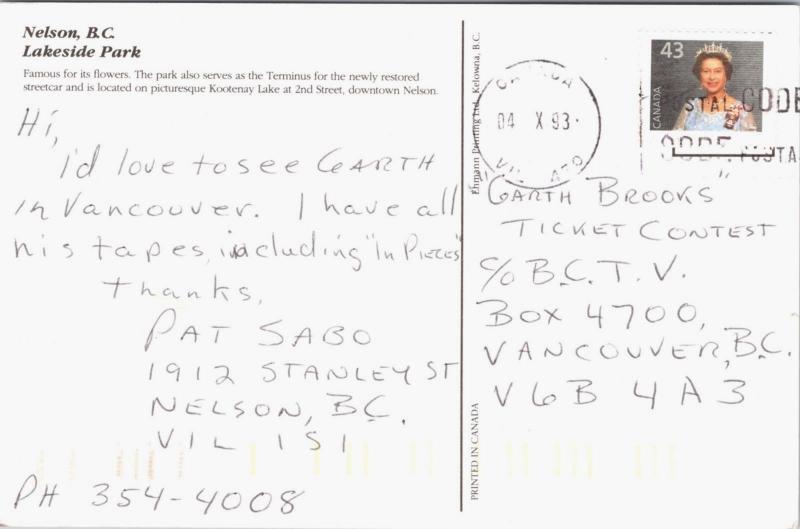 Nelson, B.C.
Lakeside Park
Famous for its flowers. The park also serves as the Terminus for the newly restored
streetcar and is located on picturesque Kootenay Lake at 2nd Street, downtown Nelson.
Hi,
I'd love to see GARTH
in Vancouver. I have all
his tapes, including "IN PIECES"
thanks,
PAT SABO
1912 STANLEY ST
NELSON, BC.
V1L 1S1
PH 354-4008
Ehmann Printing Ltd., Kelowna, B.C.
PRINTED IN CANADA
CANADA
04 X 93
43
CANADA
POSTAL CODE
CODE POSTA
"GARTH BROOKS"
TICKET CONTEST
c/o B.C.T.V.
BOX 4700,
VANCOUVER, B.C.
V6B 4A3